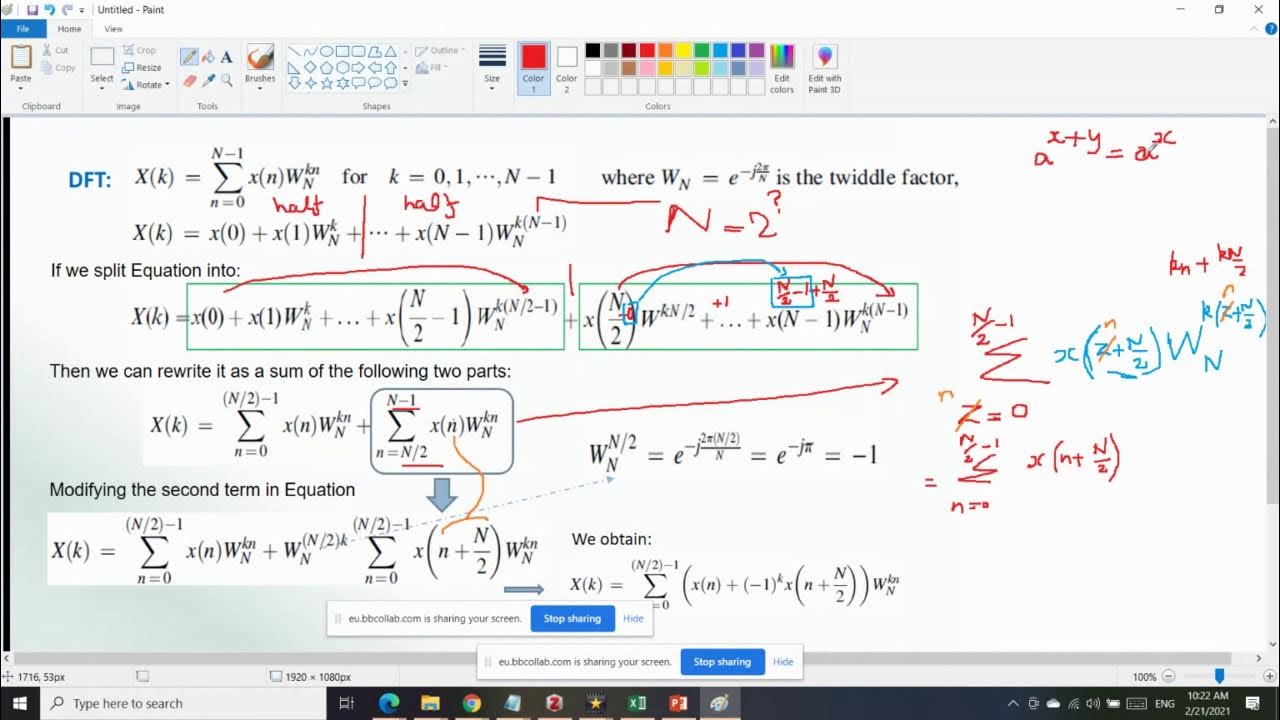 Untitled - Paint
File Home View
Paste Cut Copy Clipboard
Select Crop Resize Rotate Image
Tools
Brushes
Outline Fill Shapes
Size
Color 1 Color 2 Colors
Edit colors
Edit with Paint 3D
a^{x+y} = a^x
DFT: X(k) = \sum_{n=0}^{N-1} x(n)W_N^{kn} for k = 0, 1, ⋯, N − 1 where W_N = e^{-j\frac{2π}{N}} is the twiddle factor,
half | half
N = 2^?
X(k) = x(0) + x(1)W_N^k + ⋯ + x(N − 1)W_N^{k(N−1)}
kn + kN/2
If we split Equation into:
N/2 −1 + N/2
+0 +1
X(k) = x(0) + x(1)W_N^k + … + x(N/2 − 1)W_N^{k(N/2−1)} + x(N/2)W^{kN/2} + … + x(N − 1)W_N^{k(N−1)}
\sum_{z=0}^{N/2 −1} x(z + N/2) W_N^{k(z + N/2)}
n n n
Then we can rewrite it as a sum of the following two parts:
X(k) = \sum_{n=0}^{(N/2)−1} x(n)W_N^{kn} + \sum_{n=N/2}^{N−1} x(n)W_N^{kn}
W_N^{N/2} = e^{-j\frac{2π(N/2)}{N}} = e^{−jπ} = −1
= \sum_{n=0}^{N/2 −1} x(n + N/2)
Modifying the second term in Equation
X(k) = \sum_{n=0}^{(N/2)−1} x(n)W_N^{kn} + W_N^{(N/2)k} \sum_{n=0}^{(N/2)−1} x(n + N/2)W_N^{kn}
We obtain:
X(k) = \sum_{=0}^{(N/2)−1} (x(n) + (−1)^k x(n + N/2)) W_N^{kn}
eu.bbcollab.com is sharing your screen. Stop sharing Hide
eu.bbcollab.com is sharing your screen. Stop sharing Hide
1716, 53px 1920 × 1080px 100%
Type here to search
ENG
10:22 AM
2/21/2021